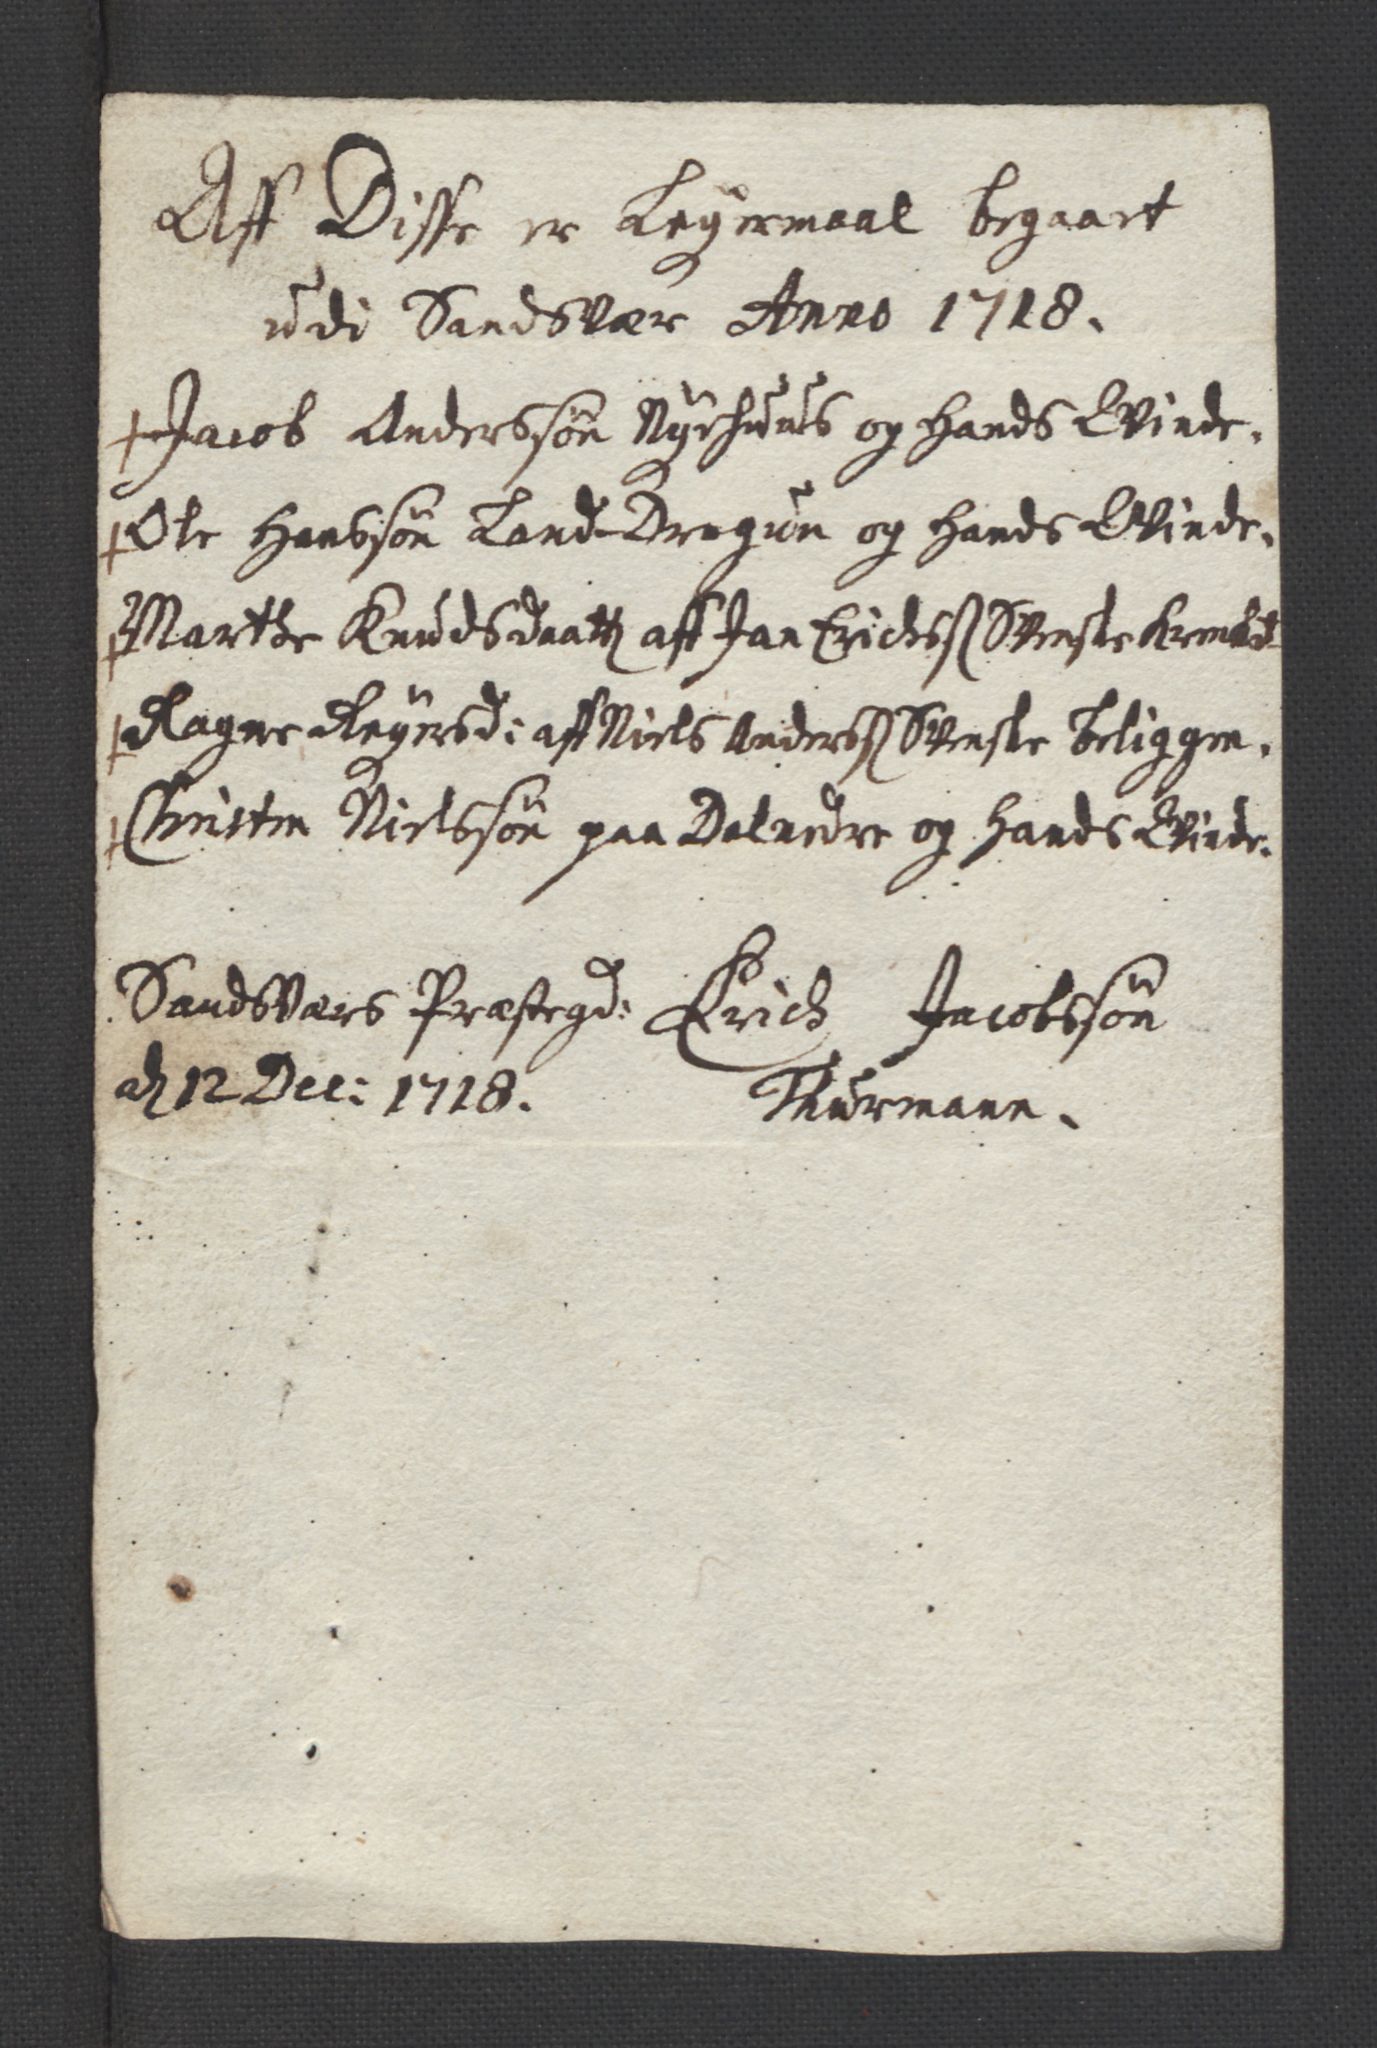 Aff Disse er Leÿermaal begaaet
udi Sandsvær Anno 1718.
+ Jacob Anderssøn Nÿehuus og hands Qvinde.
+ Ole Hanssøn Land-Dragun og hands Qvinde.
+ Marthe Knudsdaatt aff Jan Erichss Svenske
+ Ragne Reÿersd: aff Niels Anderss Svenske beliggen.
+ Christen Nielssøn paa Dalnedre og hands Qvinde.
Sandsværs Præstegd: Erich Jacobssøn
d 12 Dec: 1718. Thurmann.